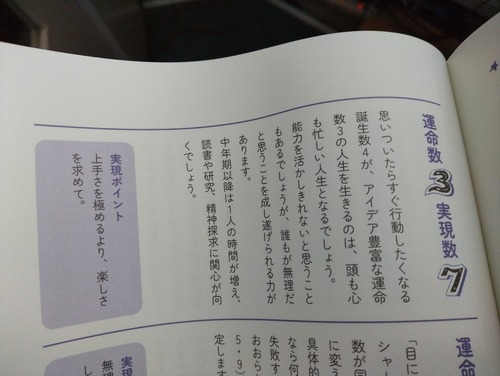 運命数3 実現数7
思いついたらすぐ行動したくなる
誕生数4が、アイデア豊富な運命
数3の人生を生きるのは、頭も心
も忙しい人生となるでしょう。
能力を活かしきれないと思うこと
もあるでしょうが、誰もが無理だ
と思うことを成し遂げられる力が
あります。
中年期以降は1人の時間が増え、
読書や研究、精神探求に関心が向
くでしょう。
実現ポイント
上手さを極めるより、楽しさ
を求めて。
運命
「目に
シャー
数が同
に変え
具体的
なら何
失敗す
おおら
5・9)
定しま
実現
無理
し